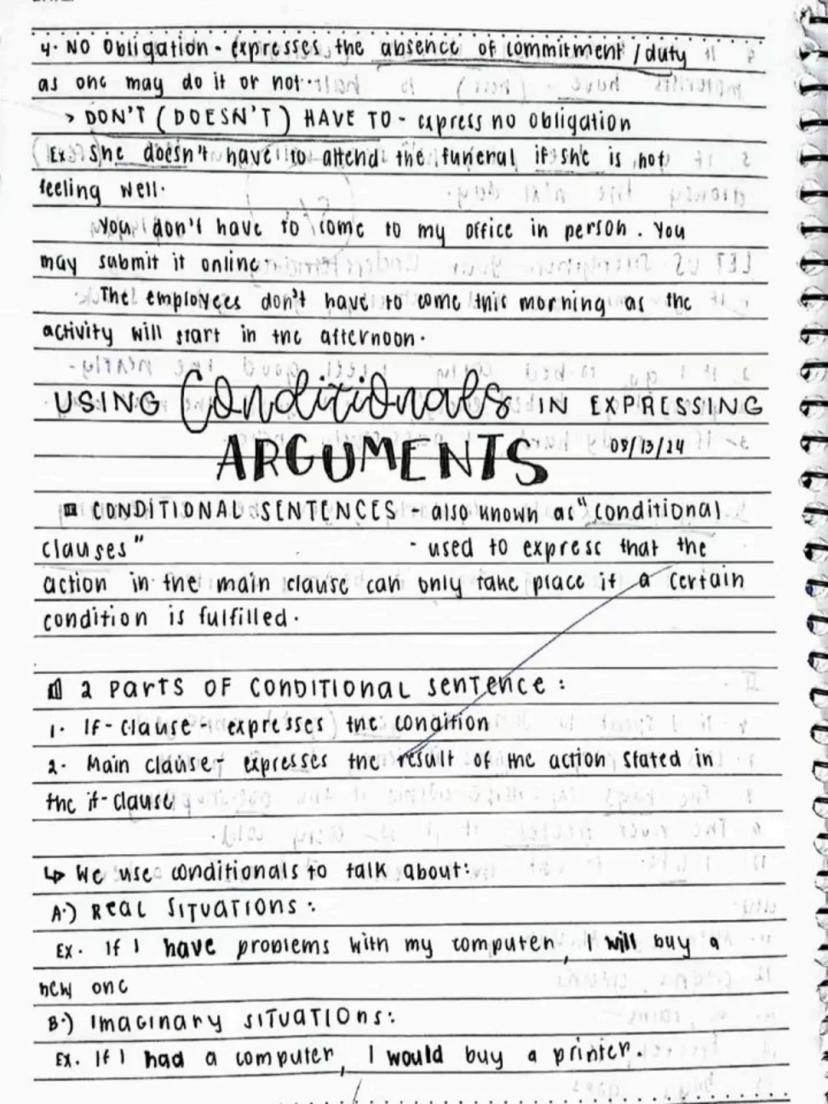 4. NO Obligation - expresses the absence of commitment / duty
as one may do it or not.
> DON'T (DOESN'T) HAVE TO - express no obligation
Ex. She doesn't have to attend the funeral if she is not
feeling well.
You don't have to come to my office in person. You
may submit it online
The employees don't have to come this morning as the
activity will start in the afternoon.
USING Conditionals IN EXPRESSING
ARGUMENTS 08/13/24
CONDITIONAL SENTENCES - also known as "conditional
clauses" - used to express that the
action in the main clause can only take place if a certain
condition is fulfilled.
2 PARTS OF CONDITIONAL SENTENCE:
1. If-clause - expresses the condition
2. Main clause - expresses the result of the action stated in
the if-clause
↳ We use conditionals to talk about:
A.) REAL SITUATIONS:
Ex. If I have problems with my computer, I will buy a
new one
B.) IMAGINARY SITUATIONS:
Ex. If I had a computer, I would buy a printer.